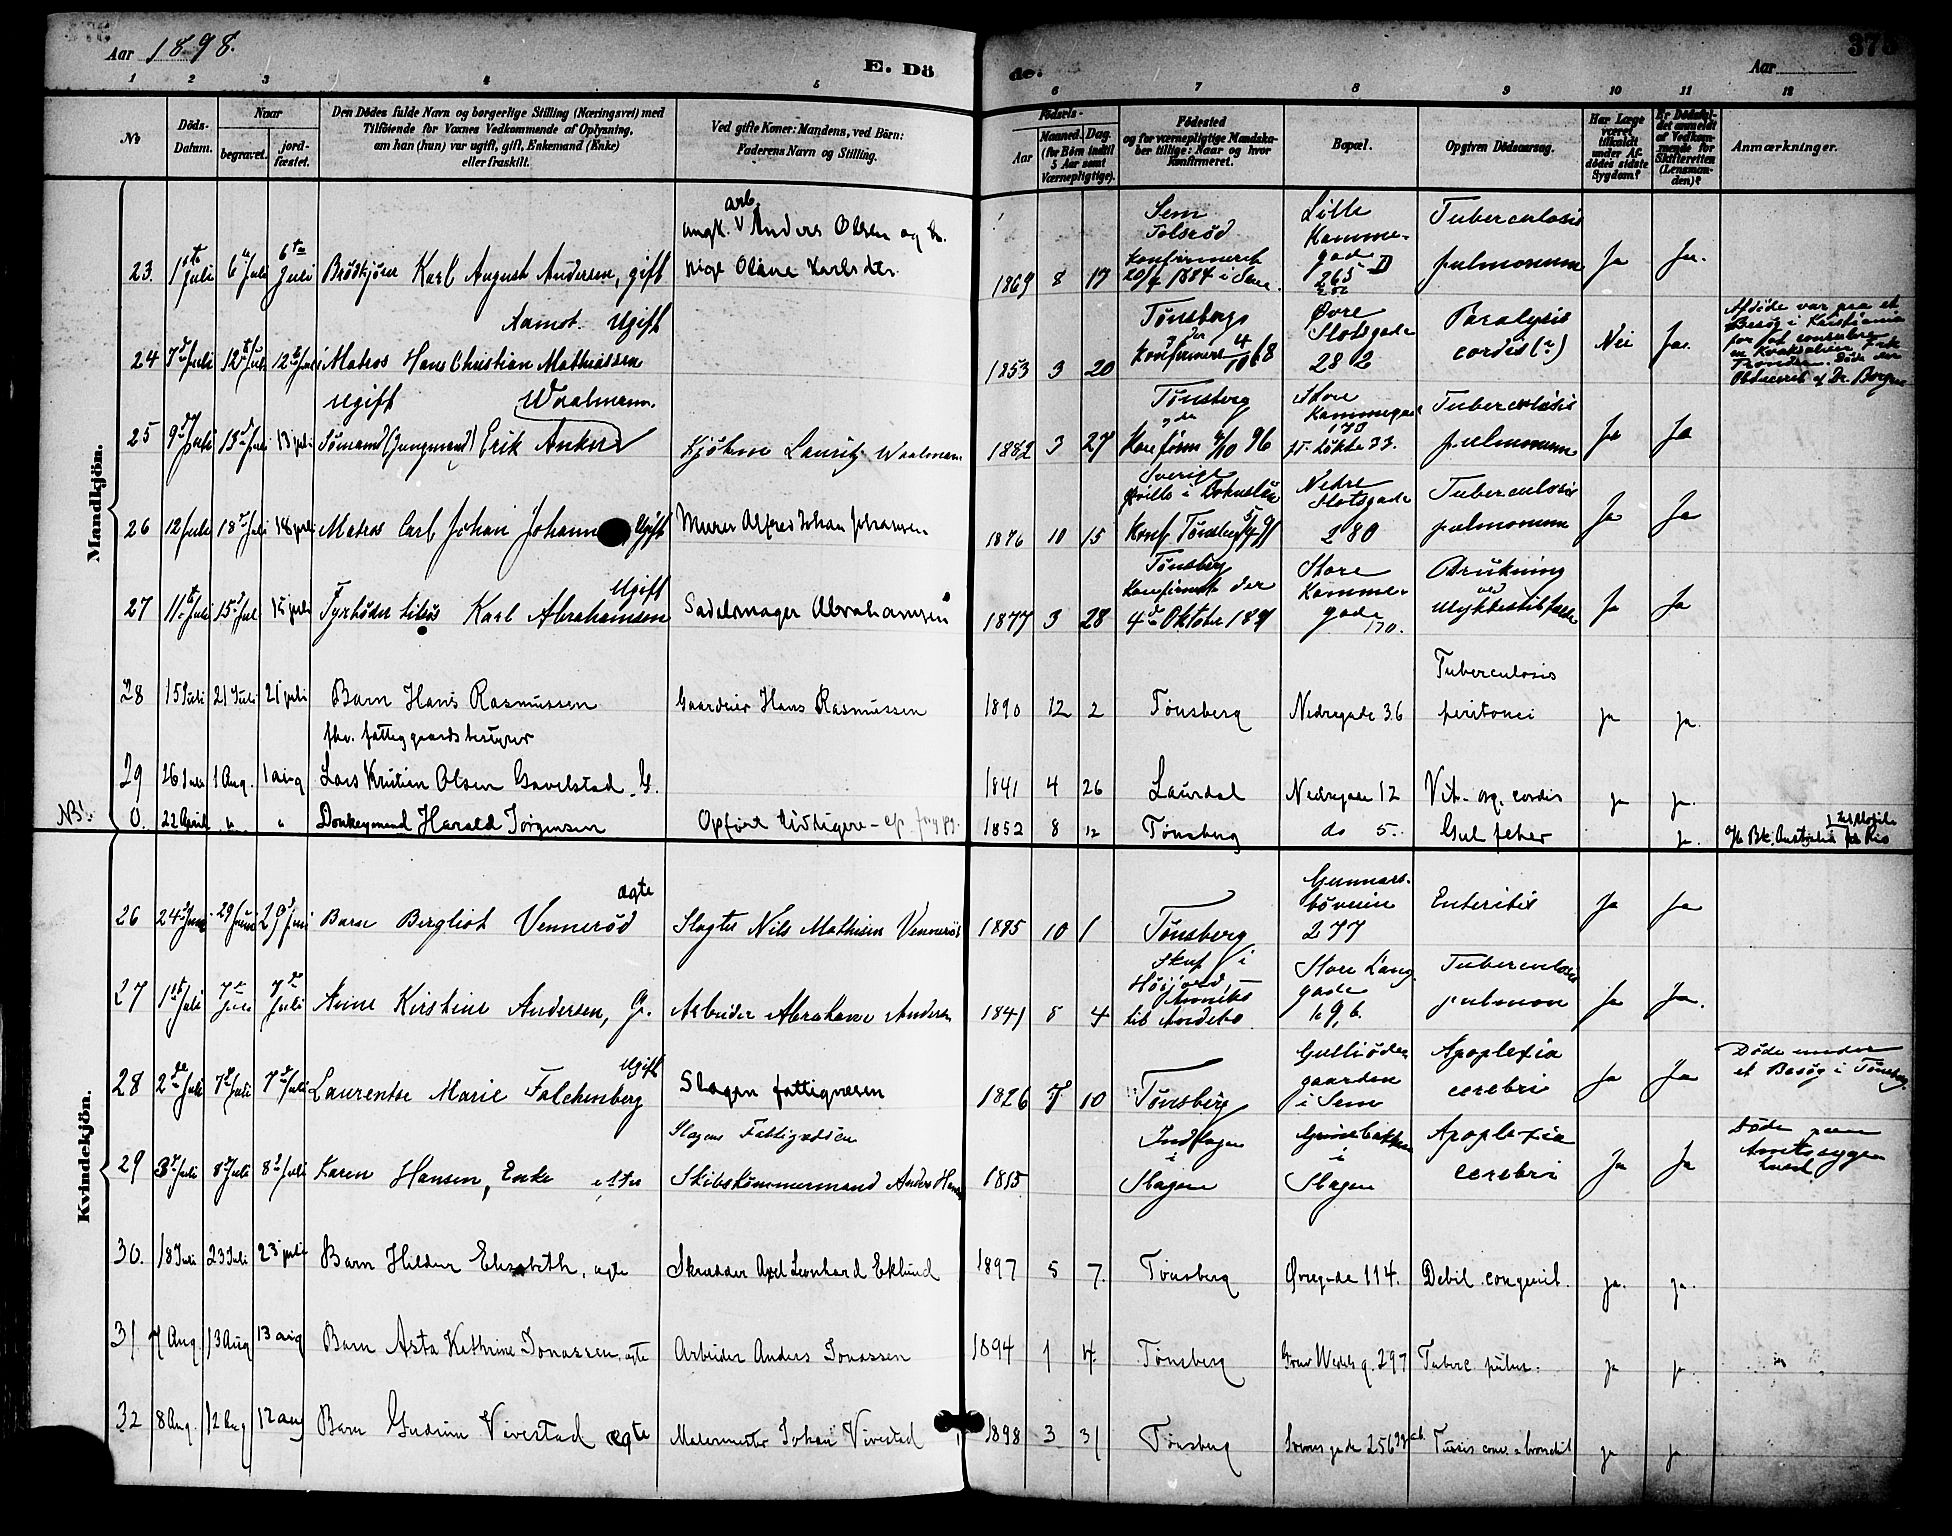 Aar 1898.
E. Dö
de.
Aar
378
1 2 3 4 5 6 7 8 9 10 11 12
No
Döds-
Datum.
Naar
begravet.
jord-
fæstet.
Den Dödes fulde Navn og borgerlige Stilling (Næringsvei) med
Tilföiende for Voxnes Vedkommende af Oplysning,
om han (hun) var ugift, gift, Enkemand (Enke)
eller fraskilt.
Ved gifte Koner: Mandens, ved Börn:
Faderens Navn og Stilling.
Födsels-
Aar
Maaned. Dag.
(for Börn indtil
5 Aar samt
Værnepligtige).
Födested
og for værnepligtige Mandska-
ber tillige: Naar og hvor
konfirmeret.
Bopæl.
Opgiven Dödsaarsag.
Har Læge
været
tilkaldt
under Af-
dödes sidste
Sygdom?
Er Dödsfal-
det anmeldt
af Vedkom-
mende for
Skifteretten
(Lensman-
den)?
Anmærkninger.
Mandkjön.
arb.
ungk. V Anders Olsen og
23. 1ste Juli 6te Juli 6te Juli Brödkjörer Karl August Andersen, gift pige Oline Karlsdtr. 1869 8 17
Sem
Tolsröd
konfirmeret
1884 i Sem
Lille
Kamme-
gade
265 D
Tuberculosis
pulmonum
Ja Ja.
Aamot. Ugift
24 7de Juli 12te Juli 12te Juli Matros Hans Christian Mathiassen 1853 3 20
Tönsberg
Konfirmeret 4/10 68
Øvre
Slotsgade
282
Paralysis
cordis (?)
Nei Ja.
Afdöde var paa et
Besög i Kristiania
for at consulere
en Kvaksalver
Ugift Waalmann.
25 9de Juli 13de Juli 13 juli Sömand (Jungmand) Erik Anker Kjöbm Lauritz Waalmann 1882 3 27
Tönsberg
Konfirm 4/10 96
Store
Kammegade
170
Tuberculosis
pulmonum
Ja Ja
26 12 Juli 18de Juli 18 juli Matros Carl Johan Johann Ugift Murer Alfred Johan Johansen 1876 10 15
Sverige
Konf Tönsberg
Nedre
Slotsgade
280
Tuberculosis
pulmonum
Ja Ja
Ugift
27 11te Juli 15de Jul 15 juli Fyrböder tilsös Karl Abrahamsen Sadelmager Abrahamsen 1877 3 28
Tönsberg
Konfirmert der
4de Oktober 1891
Store
Kamme-
gade
170.
Drukning
ved
Ulykkestilfælde
Ja Ja
28 15 Juli 21 Juli 21 juli Barn Hans Rasmussen Gaardeier Hans Rasmussen 1890 12 2 Tönsberg Nedregade 36
Tuberculosis
peritonei
ja ja.
fhv. fattiggaardsbestyrer
29 26 Juli 1 Aug. 1 aug Lars Kristian Olsen Gavelstad. G. 1841 4 26 Laurdal Nedregade 12 Vit. org. cordis ja ja.
NB! 0. 22 April " " Donkeymand Harald Jörgensen Opfört tidligere 1852 8 12 Tönsberg do 5. Gul feber ja. Bk. Australia fra Rio
Kvindekjön.
ægte
26 24de Juni 29 Juni 29de Juni Barn Bergliot Venneröd Slagter Nils Mathisen Venneröd 1895 10 1 Tönsberg
Gunnars-
böveien
277
Enteritis
Ja Ja
27 1ste Juli 7de Juli 7de Juli Anne Kirstine Andersen, G. Arbeider Abraham Andersen 1841 8 4
Höijord,
Anneks
til Andebo.
Store Lang
gade
Tuberculosis
pulmon
Ja Ja.
Ugift
28 2den Juli 7de Juli 7de Juli Laurentse Marie Falchenberg Slagen fattigvæsen 1826 7 10 Tönsberg
gaarden
i Sem
Apoplexia
cerebri
Ja Ja
Döde under
et Besög i Tönsberg
Slagens Fattigvæsen
29 3de Juli 8de Juli 8de Juli Karen Hansen, Enke efter Skibstömmermand Anders Hansen 1815
Indlagen
i
Slagen
i
Slagen
Apoplexia
cerebri
Ja Ja
Döde paa
Amtssyge-
huset
30. 18 Juli 23 Juli 23 juli Barn Hildur Elisabeth, ægte Skrædder Axel Leonhard Eklund 1897 5 7. Tönsberg Øvregade 114. Debil. congenit. ja. ja.
31 7 Aug. 13 Aug 13 aug Barn Asta Kathrine Jonassen, ægte Arbeider Anders Jonassen 1894 1 4 Tönsberg Grev Wedels g. 297 Tuberc. pulm. ja ja
32 8 Aug. 12 Aug 12 aug Barn Gudrun Vivestad ægte Malermester Johan Vivestad 1898 3 31 Tönsberg Tussis conv. ja ja